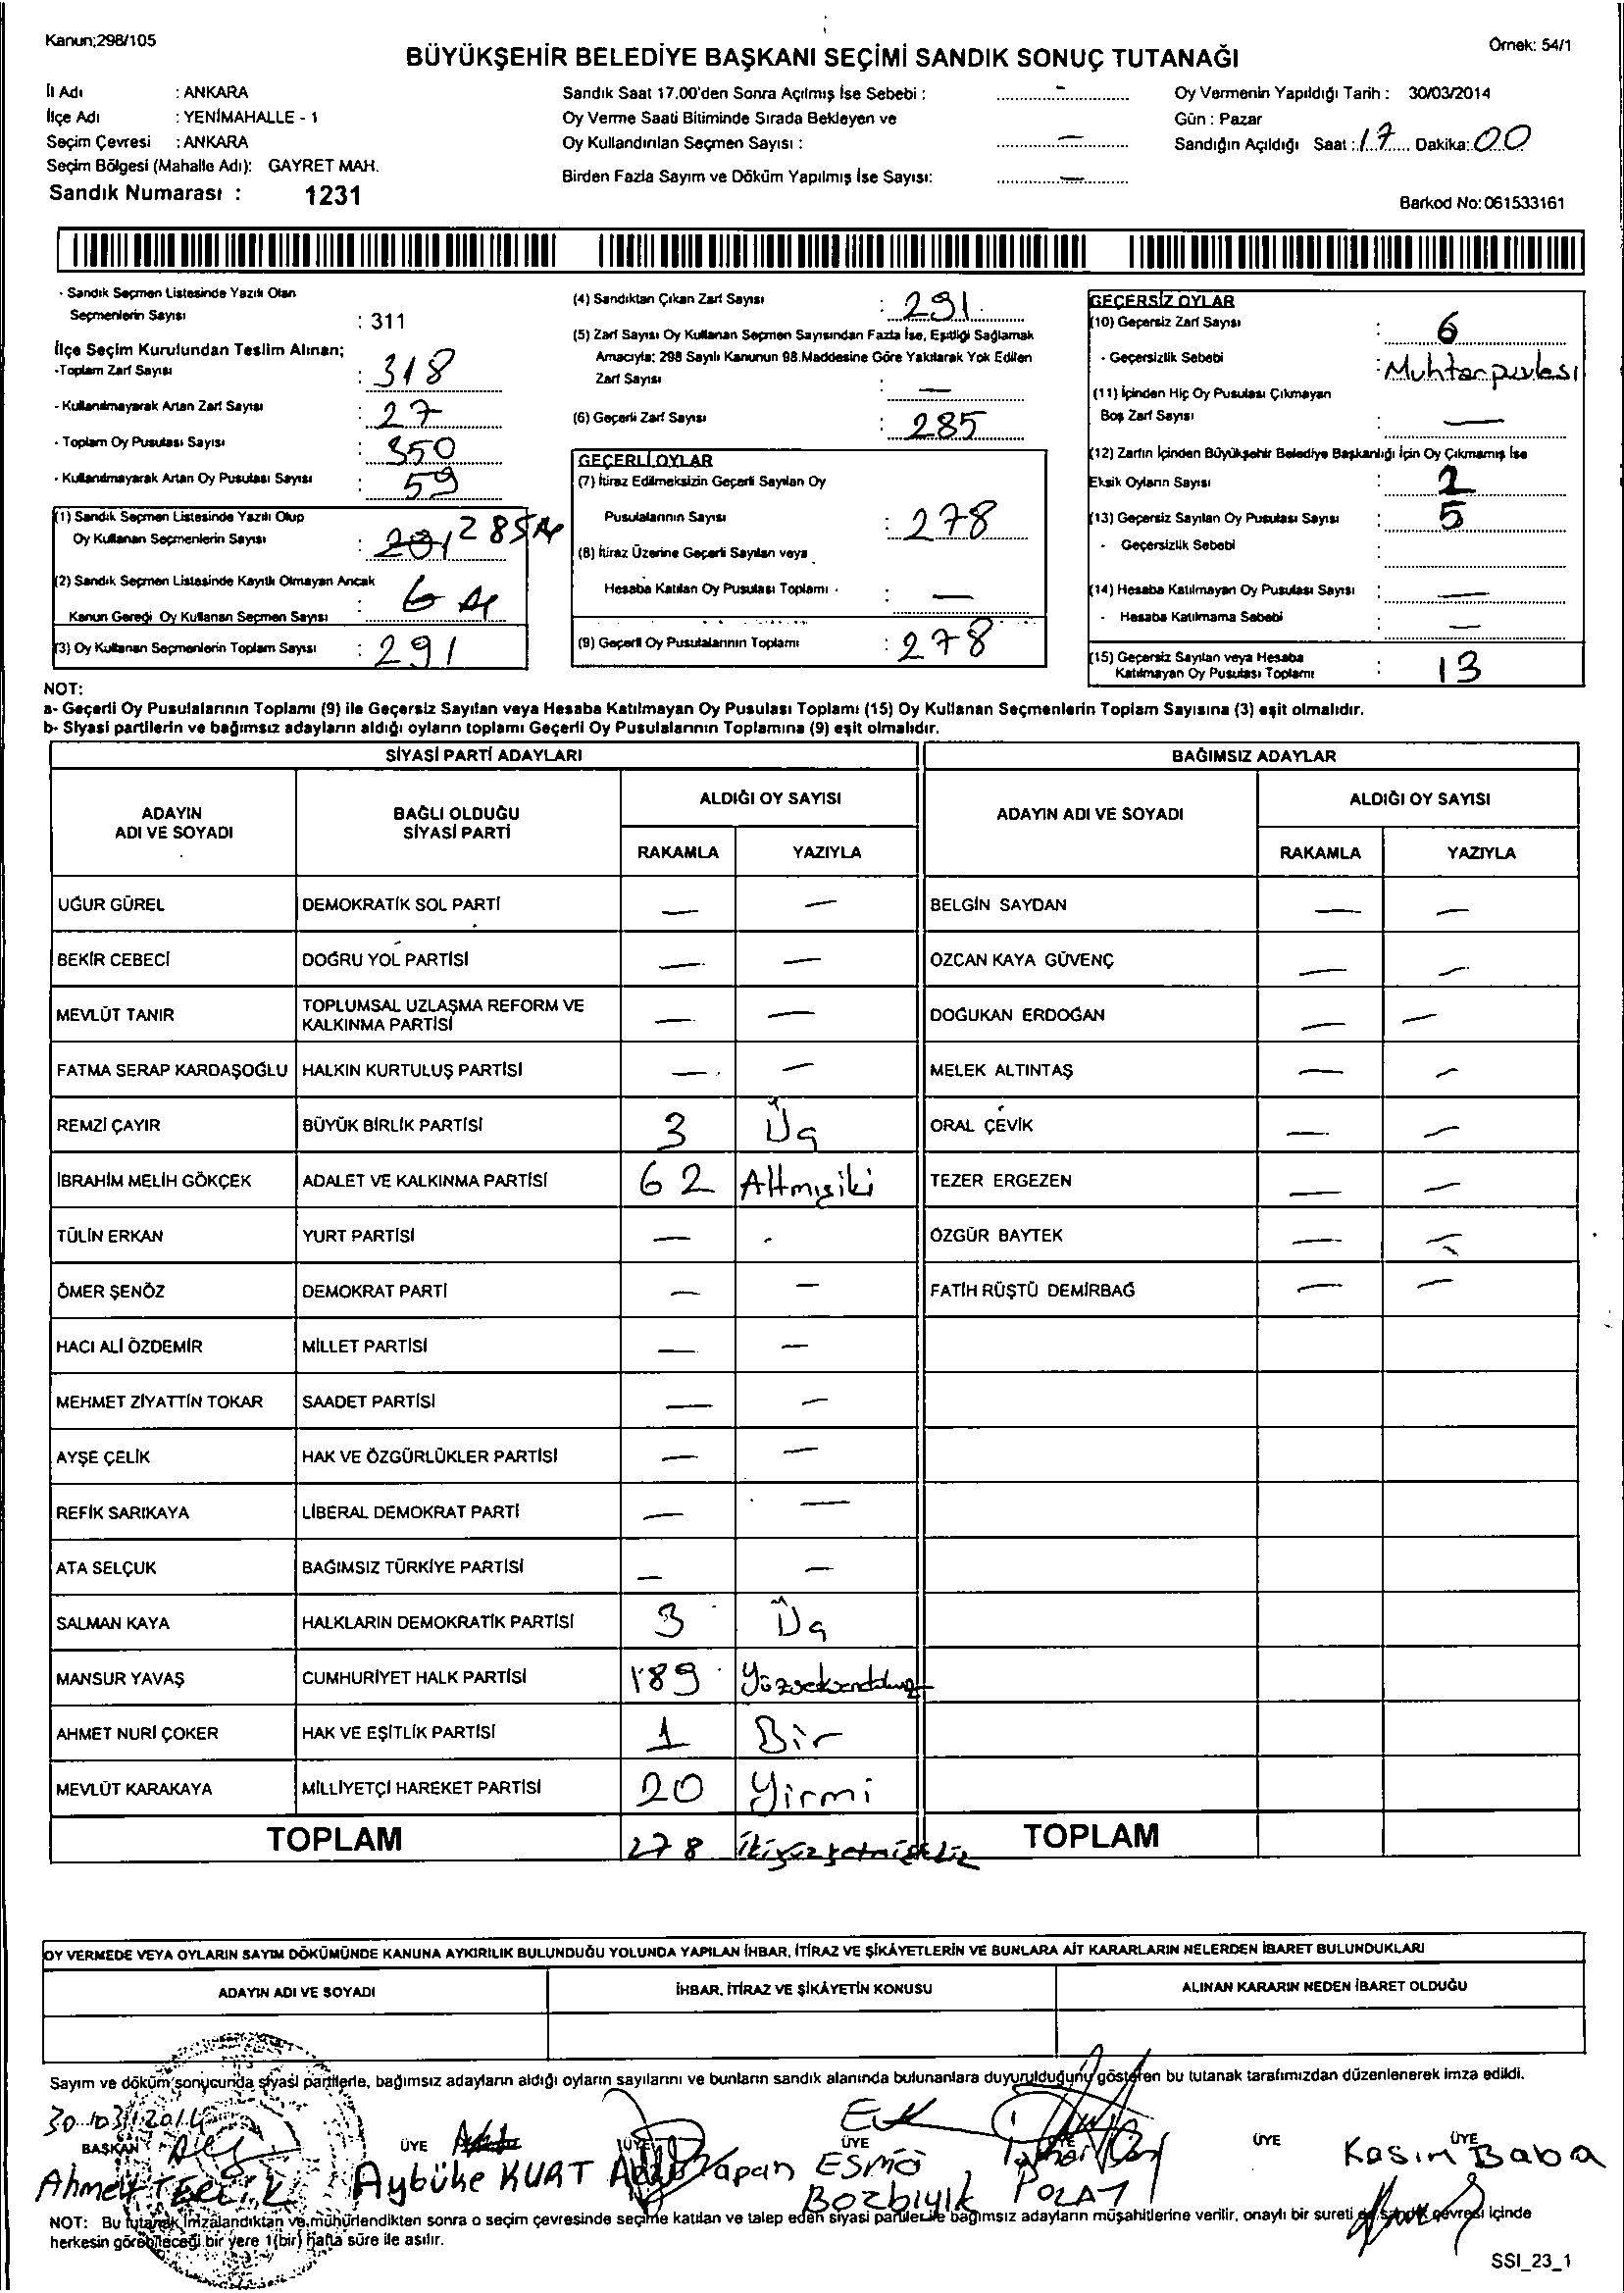 Kanun;298/105
Örnek: 54/1
BÜYÜKŞEHİR BELEDİYE BAŞKANI SEÇİMİ SANDIK SONUÇ TUTANAĞI
İl Adı : ANKARA
İlçe Adı : YENİMAHALLE - 1
Seçim Çevresi : ANKARA
Seçim Bölgesi (Mahalle Adı): GAYRET MAH.
Sandık Numarası : 1231
Sandık Saat 17.00'den Sonra Açılmış İse Sebebi : -
Oy Verme Saati Bitiminde Sırada Bekleyen ve
Oy Kullandırılan Seçmen Sayısı : —
Birden Fazla Sayım ve Döküm Yapılmış İse Sayısı: —
Oy Vermenin Yapıldığı Tarih : 30/03/2014
Gün : Pazar
Sandığın Açıldığı Saat : 17 Dakika: 00
Barkod No: 061533161
- Sandık Seçmen Listesinde Yazılı Olan
Seçmenlerin Sayısı : 311
İlçe Seçim Kurulundan Teslim Alınan;
-Toplam Zarf Sayısı : 318
- Kullanılmayarak Artan Zarf Sayısı : 27
- Toplam Oy Pusulası Sayısı : 350
- Kullanılmayarak Artan Oy Pusulası Sayısı : 59
(1) Sandık Seçmen Listesinde Yazılı Olup
Oy Kullanan Seçmenlerin Sayısı : 285
(2) Sandık Seçmen Listesinde Kayıtlı Olmayan Ancak
Kanun Gereği Oy Kullanan Seçmen Sayısı : 6
(3) Oy Kullanan Seçmenlerin Toplam Sayısı : 291
(4) Sandıktan Çıkan Zarf Sayısı : 291
(5) Zarf Sayısı Oy Kullanan Seçmen Sayısından Fazla İse, Eşitliği Sağlamak
Amacıyla; 298 Sayılı Kanunun 98.Maddesine Göre Yakılarak Yok Edilen
Zarf Sayısı : —
(6) Geçerli Zarf Sayısı : 285
GEÇERLİ OYLAR
(7) İtiraz Edilmeksizin Geçerli Sayılan Oy
Pusulalarının Sayısı : 278
(8) İtiraz Üzerine Geçerli Sayılan veya
Hesaba Katılan Oy Pusulası Toplamı : —
(9) Geçerli Oy Pusulalarının Toplamı : 278
GEÇERSİZ OYLAR
(10) Geçersiz Zarf Sayısı : 6
- Geçersizlik Sebebi : Muhtar puslası
(11) İçinden Hiç Oy Pusulası Çıkmayan
Boş Zarf Sayısı —
(12) Zarfın İçinden Büyükşehir Belediye Başkanlığı İçin Oy Çıkmamış İse
Eksik Oyların Sayısı : 2
(13) Geçersiz Sayılan Oy Pusulası Sayısı : 5
- Geçersizlik Sebebi :
(14) Hesaba Katılmayan Oy Pusulası Sayısı : —
- Hesaba Katılmama Sebebi : —
(15) Geçersiz Sayılan veya Hesaba
Katılmayan Oy Pusulası Toplamı : 13
NOT:
a- Geçerli Oy Pusulalarının Toplamı (9) ile Geçersiz Sayılan veya Hesaba Katılmayan Oy Pusulası Toplamı (15) Oy Kullanan Seçmenlerin Toplam Sayısına (3) eşit olmalıdır.
b- Siyasi partilerin ve bağımsız adayların aldığı oyların toplamı Geçerli Oy Pusulalarının Toplamına (9) eşit olmalıdır.
SİYASİ PARTİ ADAYLARI
BAĞIMSIZ ADAYLAR
ADAYIN ADI VE SOYADI
BAĞLI OLDUĞU SİYASİ PARTİ
ALDIĞI OY SAYISI
RAKAMLA YAZIYLA
ADAYIN ADI VE SOYADI
ALDIĞI OY SAYISI
RAKAMLA YAZIYLA
UĞUR GÜREL DEMOKRATİK SOL PARTİ — — BELGİN SAYDAN — —
BEKİR CEBECİ DOĞRU YOL PARTİSİ — — ÖZCAN KAYA GÜVENÇ — —
MEVLÜT TANIR TOPLUMSAL UZLAŞMA REFORM VE KALKINMA PARTİSİ — — DOĞUKAN ERDOĞAN — —
FATMA SERAP KARDAŞOĞLU HALKIN KURTULUŞ PARTİSİ — — MELEK ALTINTAŞ — —
REMZİ ÇAYIR BÜYÜK BİRLİK PARTİSİ 3 Üç ORAL ÇEVİK — —
İBRAHİM MELİH GÖKÇEK ADALET VE KALKINMA PARTİSİ 62 Altmışiki TEZER ERGEZEN — —
TÜLİN ERKAN YURT PARTİSİ — - ÖZGÜR BAYTEK — —
ÖMER ŞENÖZ DEMOKRAT PARTİ — — FATİH RÜŞTÜ DEMİRBAĞ — —
HACI ALİ ÖZDEMİR MİLLET PARTİSİ — —
MEHMET ZİYATTİN TOKAR SAADET PARTİSİ — —
AYŞE ÇELİK HAK VE ÖZGÜRLÜKLER PARTİSİ — —
REFİK SARIKAYA LİBERAL DEMOKRAT PARTİ — —
ATA SELÇUK BAĞIMSIZ TÜRKİYE PARTİSİ — —
SALMAN KAYA HALKLARIN DEMOKRATİK PARTİSİ 3 Üç
MANSUR YAVAŞ CUMHURİYET HALK PARTİSİ 189 Yüzseksendokuz
AHMET NURİ ÇOKER HAK VE EŞİTLİK PARTİSİ 1 Bir
MEVLÜT KARAKAYA MİLLİYETÇİ HAREKET PARTİSİ 20 Yirmi
TOPLAM 278 ikiyüzyetmişsekiz TOPLAM
OY VERMEDE VEYA OYLARIN SAYIM DÖKÜMÜNDE KANUNA AYKIRILIK BULUNDUĞU YOLUNDA YAPILAN İHBAR, İTİRAZ VE ŞİKÂYETLERİN VE BUNLARA AİT KARARLARIN NELERDEN İBARET BULUNDUKLARI
ADAYIN ADI VE SOYADI İHBAR, İTİRAZ VE ŞİKÂYETİN KONUSU ALINAN KARARIN NEDEN İBARET OLDUĞU
Sayım ve döküm sonucunda siyasi partilerle, bağımsız adayların aldığı oyların sayılarını ve bunların sandık alanında bulunanlara duyurulduğunu gösteren bu tutanak tarafımızdan düzenlenerek imza edildi.
30/03/2014
BAŞKAN ÜYE ÜYE ÜYE ÜYE ÜYE ÜYE
Ahmet Aybüke KURT Yapan ESMA BOZBIYIK POLAT Kasım Baba
NOT: Bu tutanak imzalandıktan ve mühürlendikten sonra o seçim çevresinde seçime katılan ve talep eden siyasi partiler ile bağımsız adayların müşahitlerine verilir, onaylı bir sureti de sandık çevresi içinde
herkesin görebileceği bir yere 1(bir) hafta süre ile asılır.
SSI_23_1